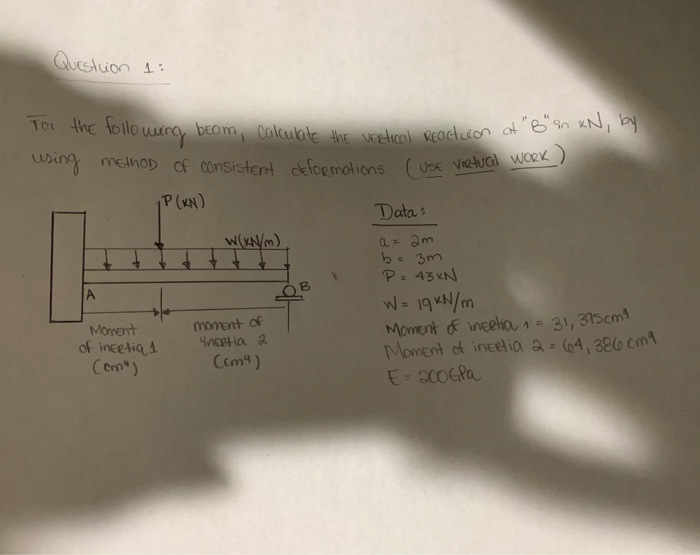 Question 1:
For the following beam, Calculate the vertical Reaction at "B" in KN, by
using METHOD OF consistent deformations (USE VIRTUAL WORK)
P(KN)
W(KN/m)
A
B
Moment
of inertia 1
(cm⁴)
moment of
inertia 2
(cm⁴)
Data:
a = 2m
b = 3m
P = 43 KN
W = 19 KN/m
Moment of inertia 1 = 31,395cm⁴
Moment of inertia 2 = 64,386 cm⁴
E = 200GPa